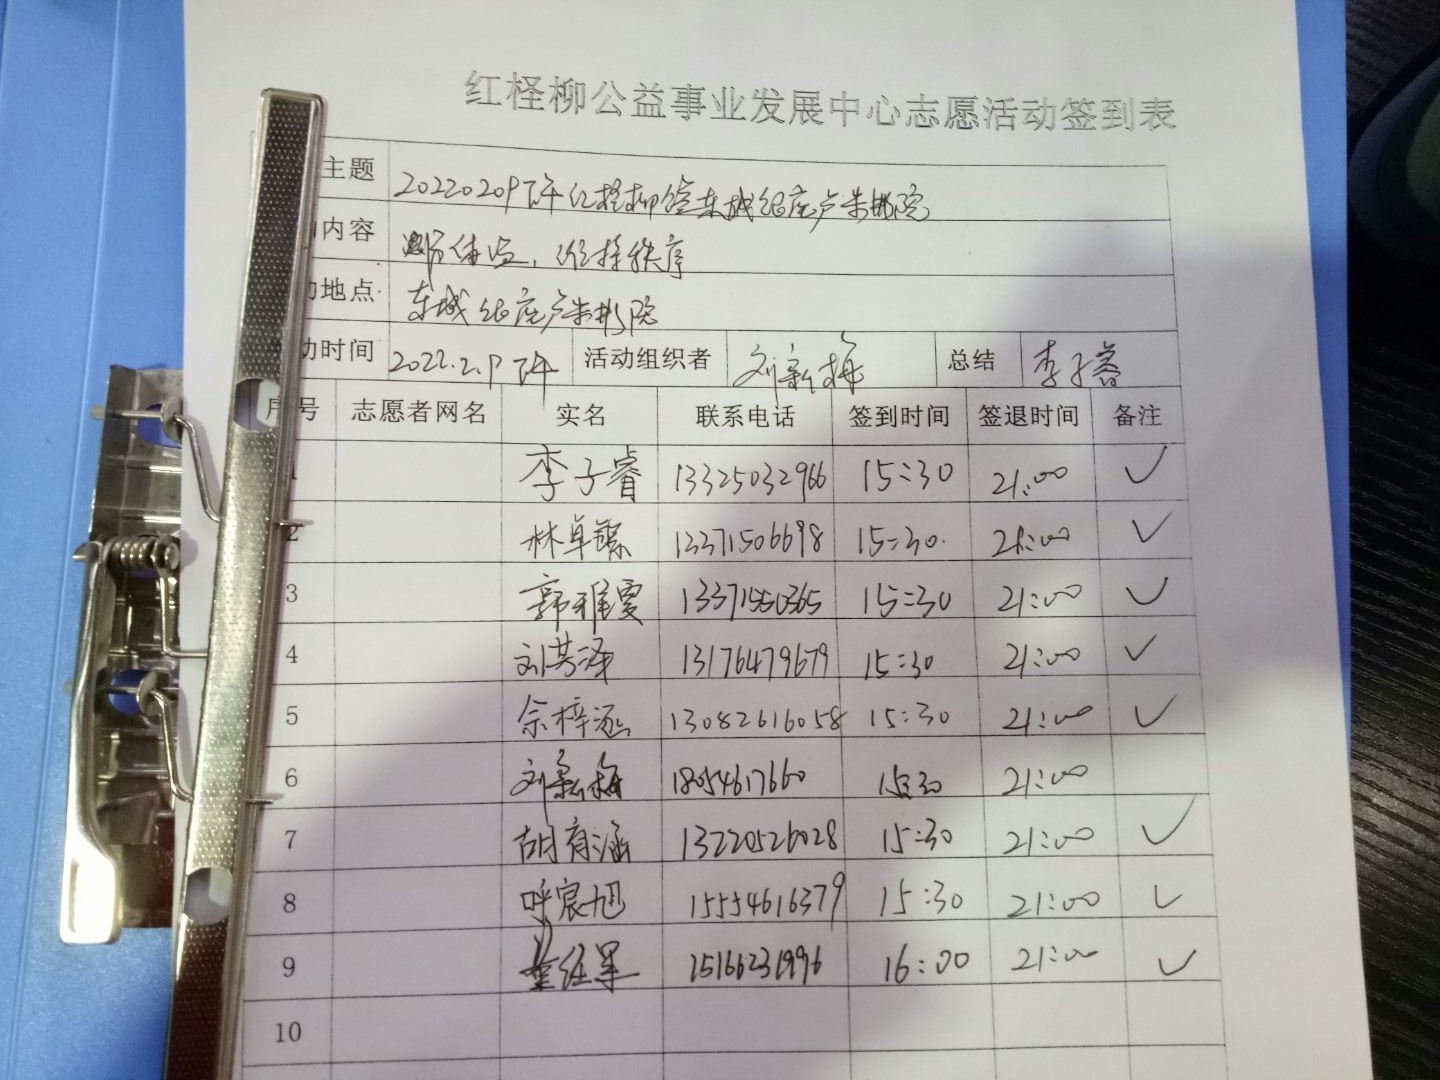 红柽柳公益事业发展中心志愿活动签到表
主题 20220209下午红柽柳
内容 维持秩序
地点 东城
时间 2022.2.9下午 活动组织者 刘新梅 总结 李子睿
序号 志愿者网名 实名 联系电话 签到时间 签退时间 备注
1 李子睿 13325032966 15:30 21:00 ✓
2 林卓 13371506698 15:30 21:00 ✓
3 郭雅雯 13371550365 15:30 21:00 ✓
4 刘芸泽 13176479679 15:30 21:00 ✓
5 佘梓涵 13082616058 15:30 21:00 ✓
6 刘新梅 18054617660 15:30 21:00
7 胡育涵 13220526028 15:30 21:00 ✓
8 呼宸旭 15554616379 15:30 21:00 ✓
9 15166231996 16:00 21:00 ✓
10